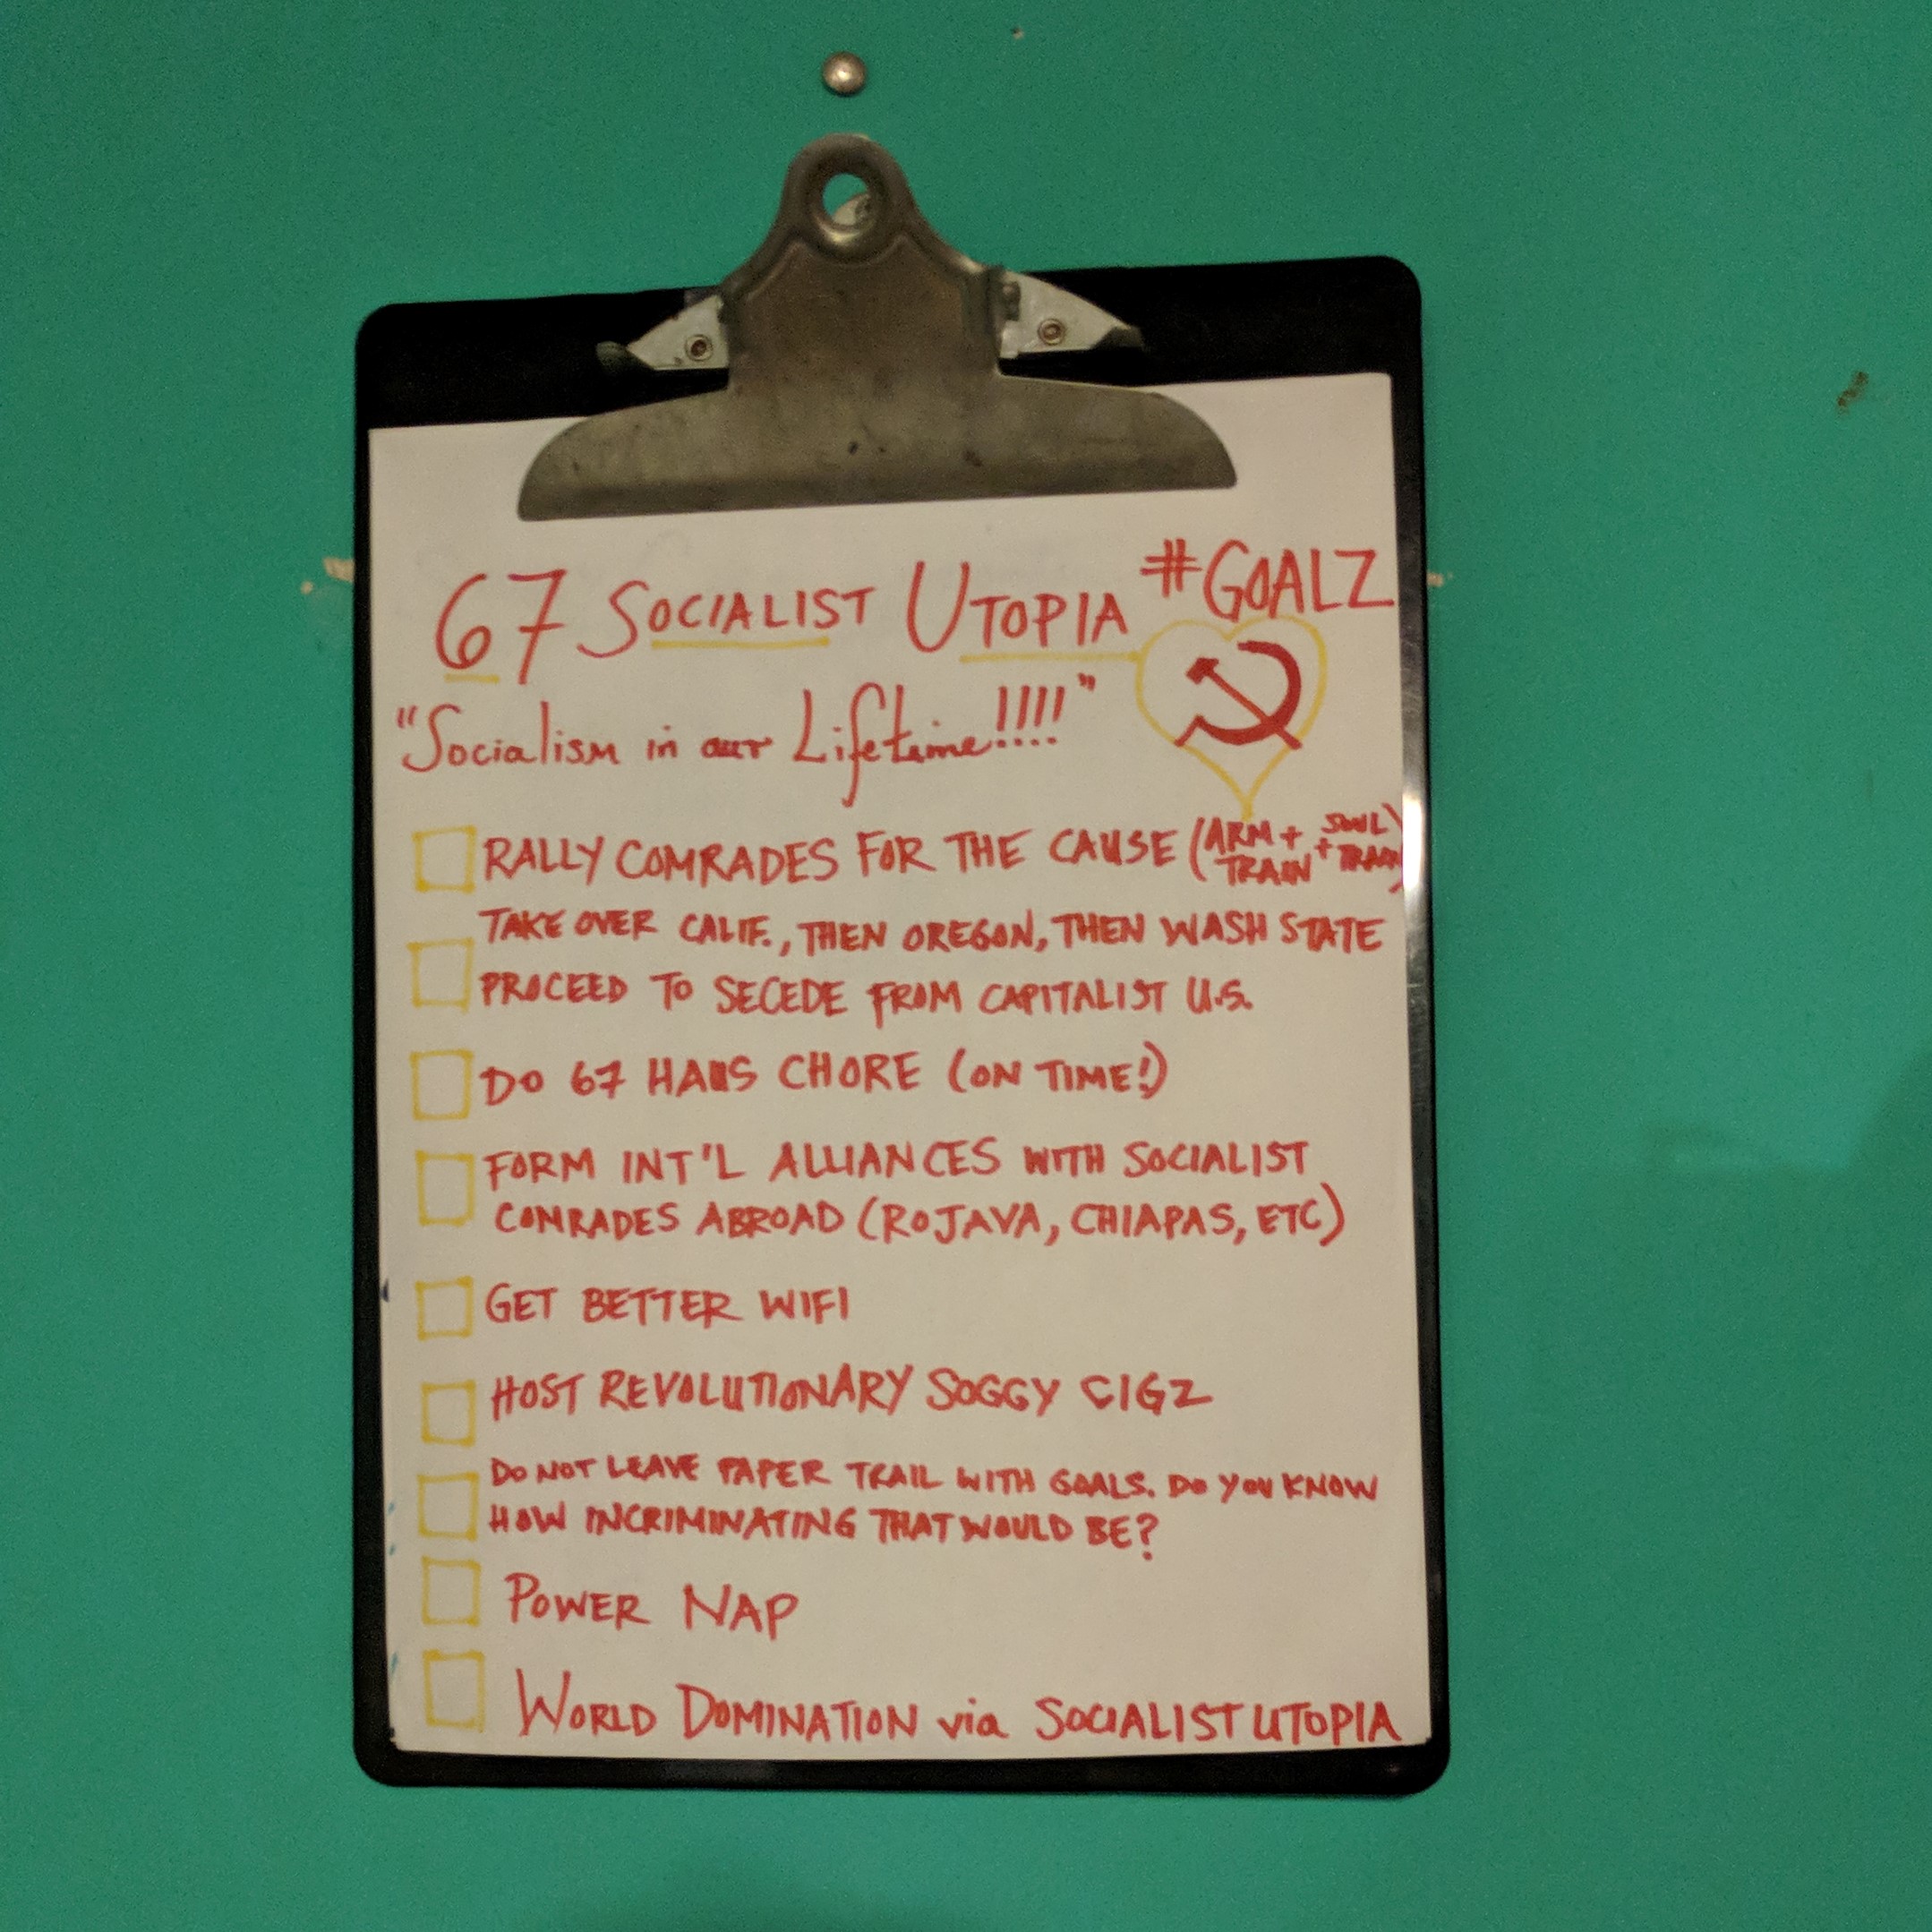 67 SOCIALIST UTOPIA #GOALZ
"Socialism in our Lifetime!!!!"
RALLY COMRADES FOR THE CAUSE (ARM + TRAIN + SOUL TRAIN)
TAKE OVER CALIF., THEN OREGON, THEN WASH STATE
PROCEED TO SECEDE FROM CAPITALIST U.S.
DO 67 HAUS CHORE (ON TIME!)
FORM INT'L ALLIANCES WITH SOCIALIST
COMRADES ABROAD (ROJAVA, CHIAPAS, ETC)
GET BETTER WIFI
HOST REVOLUTIONARY SOGGY CIGZ
DO NOT LEAVE PAPER TRAIL WITH GOALS. DO YOU KNOW
HOW INCRIMINATING THAT WOULD BE?
POWER NAP
WORLD DOMINATION via SOCIALIST UTOPIA